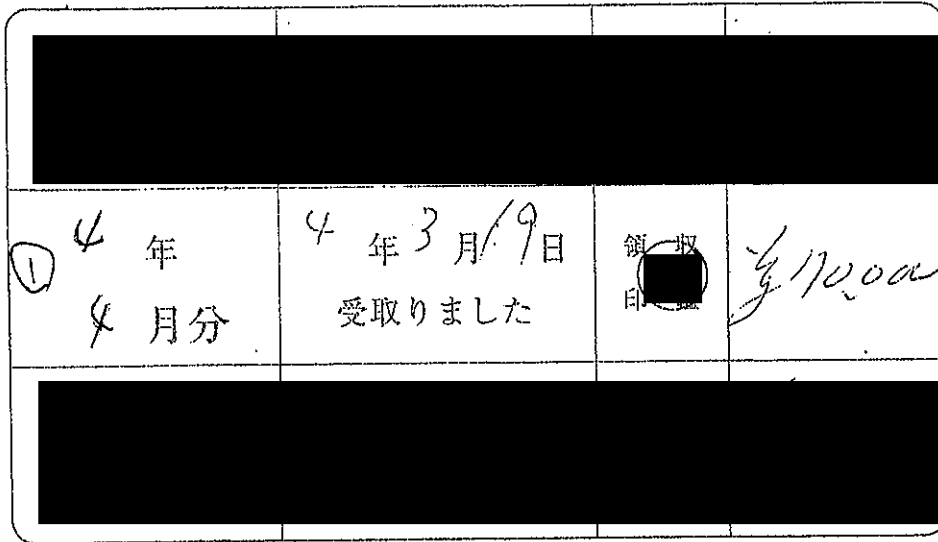 ① 4年
4月分
4年3月19日
受取りました
領収
印鑑
¥170,000